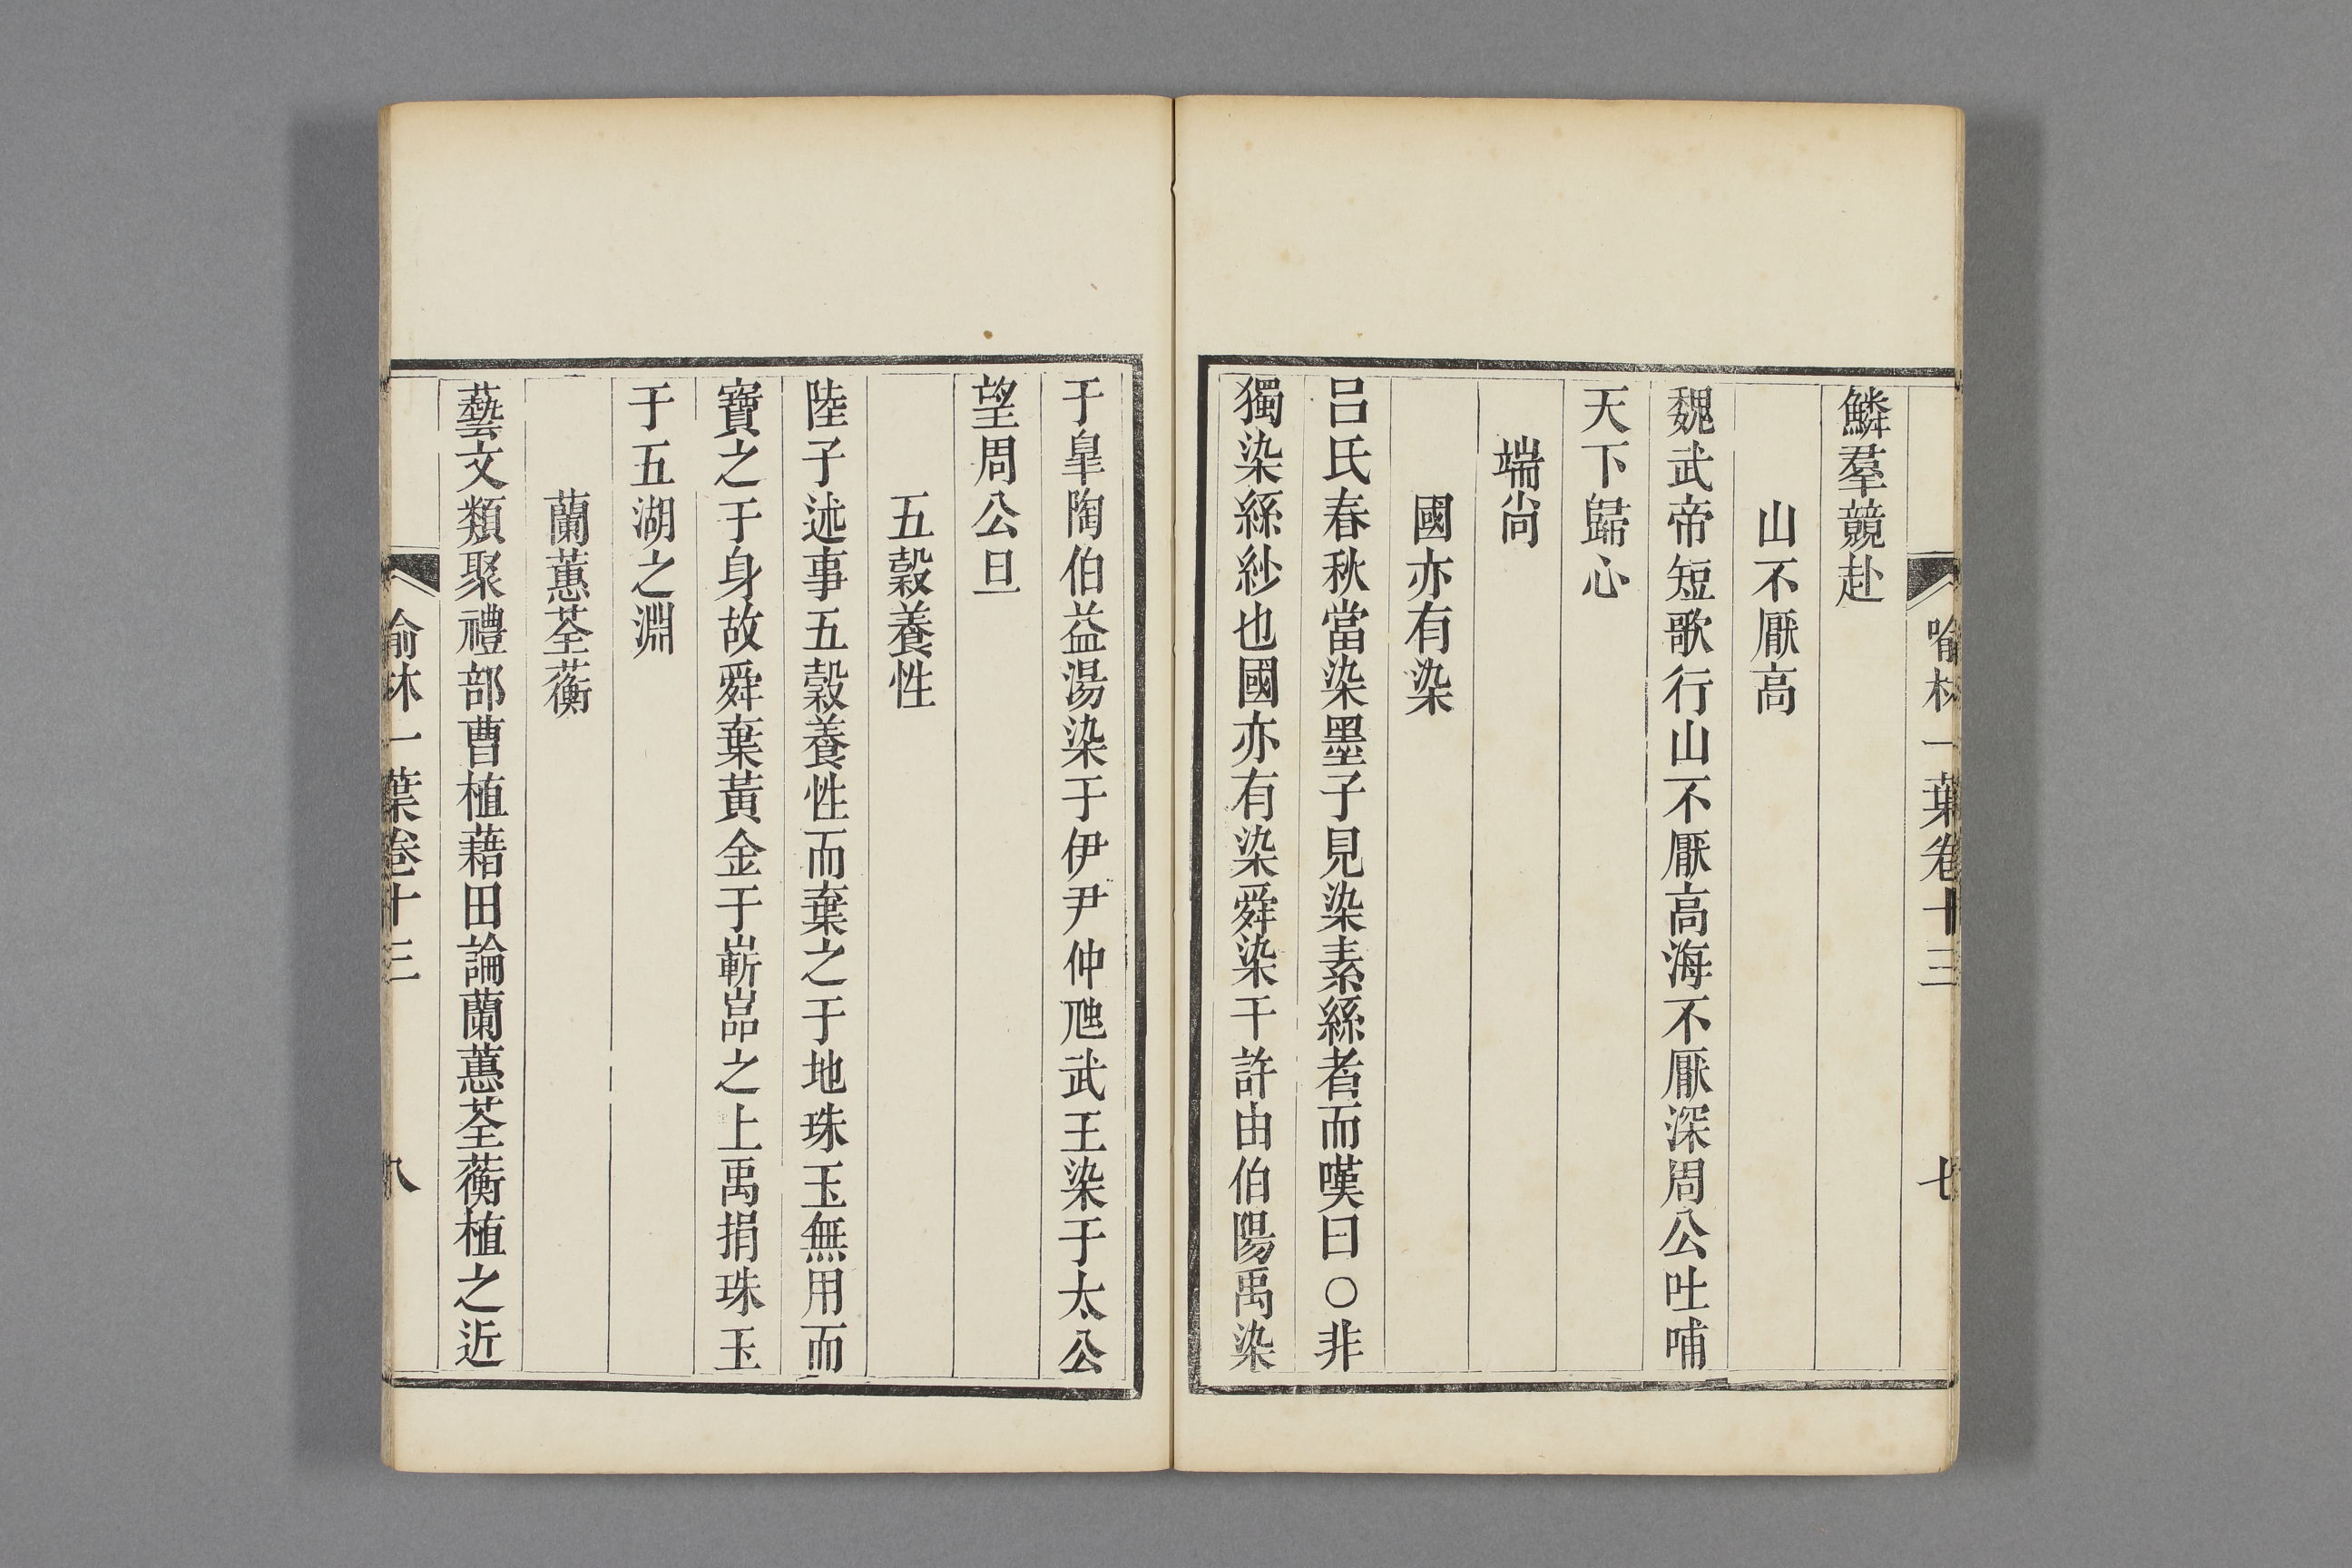 喻林一葉卷十三
七
鱗羣競赴
山不厭高
魏武帝短歌行山不厭高海不厭深周公吐哺
天下歸心
端尚
國亦有染
呂氏春秋當染墨子見染素絲者而嘆曰○非
獨染絲紗也國亦有染舜染于許由伯陽禹染
于臯陶伯益湯染于伊尹仲虺武王染于太公
望周公旦
五穀養性
陸子述事五穀養性而棄之于地珠玉無用而
寶之于身故舜棄黃金于嶄嵓之上禹捐珠玉
于五湖之淵
蘭蕙荃蘅
藝文類聚禮部曹植藉田論蘭蕙荃蘅植之近
喻林一葉卷十三
八